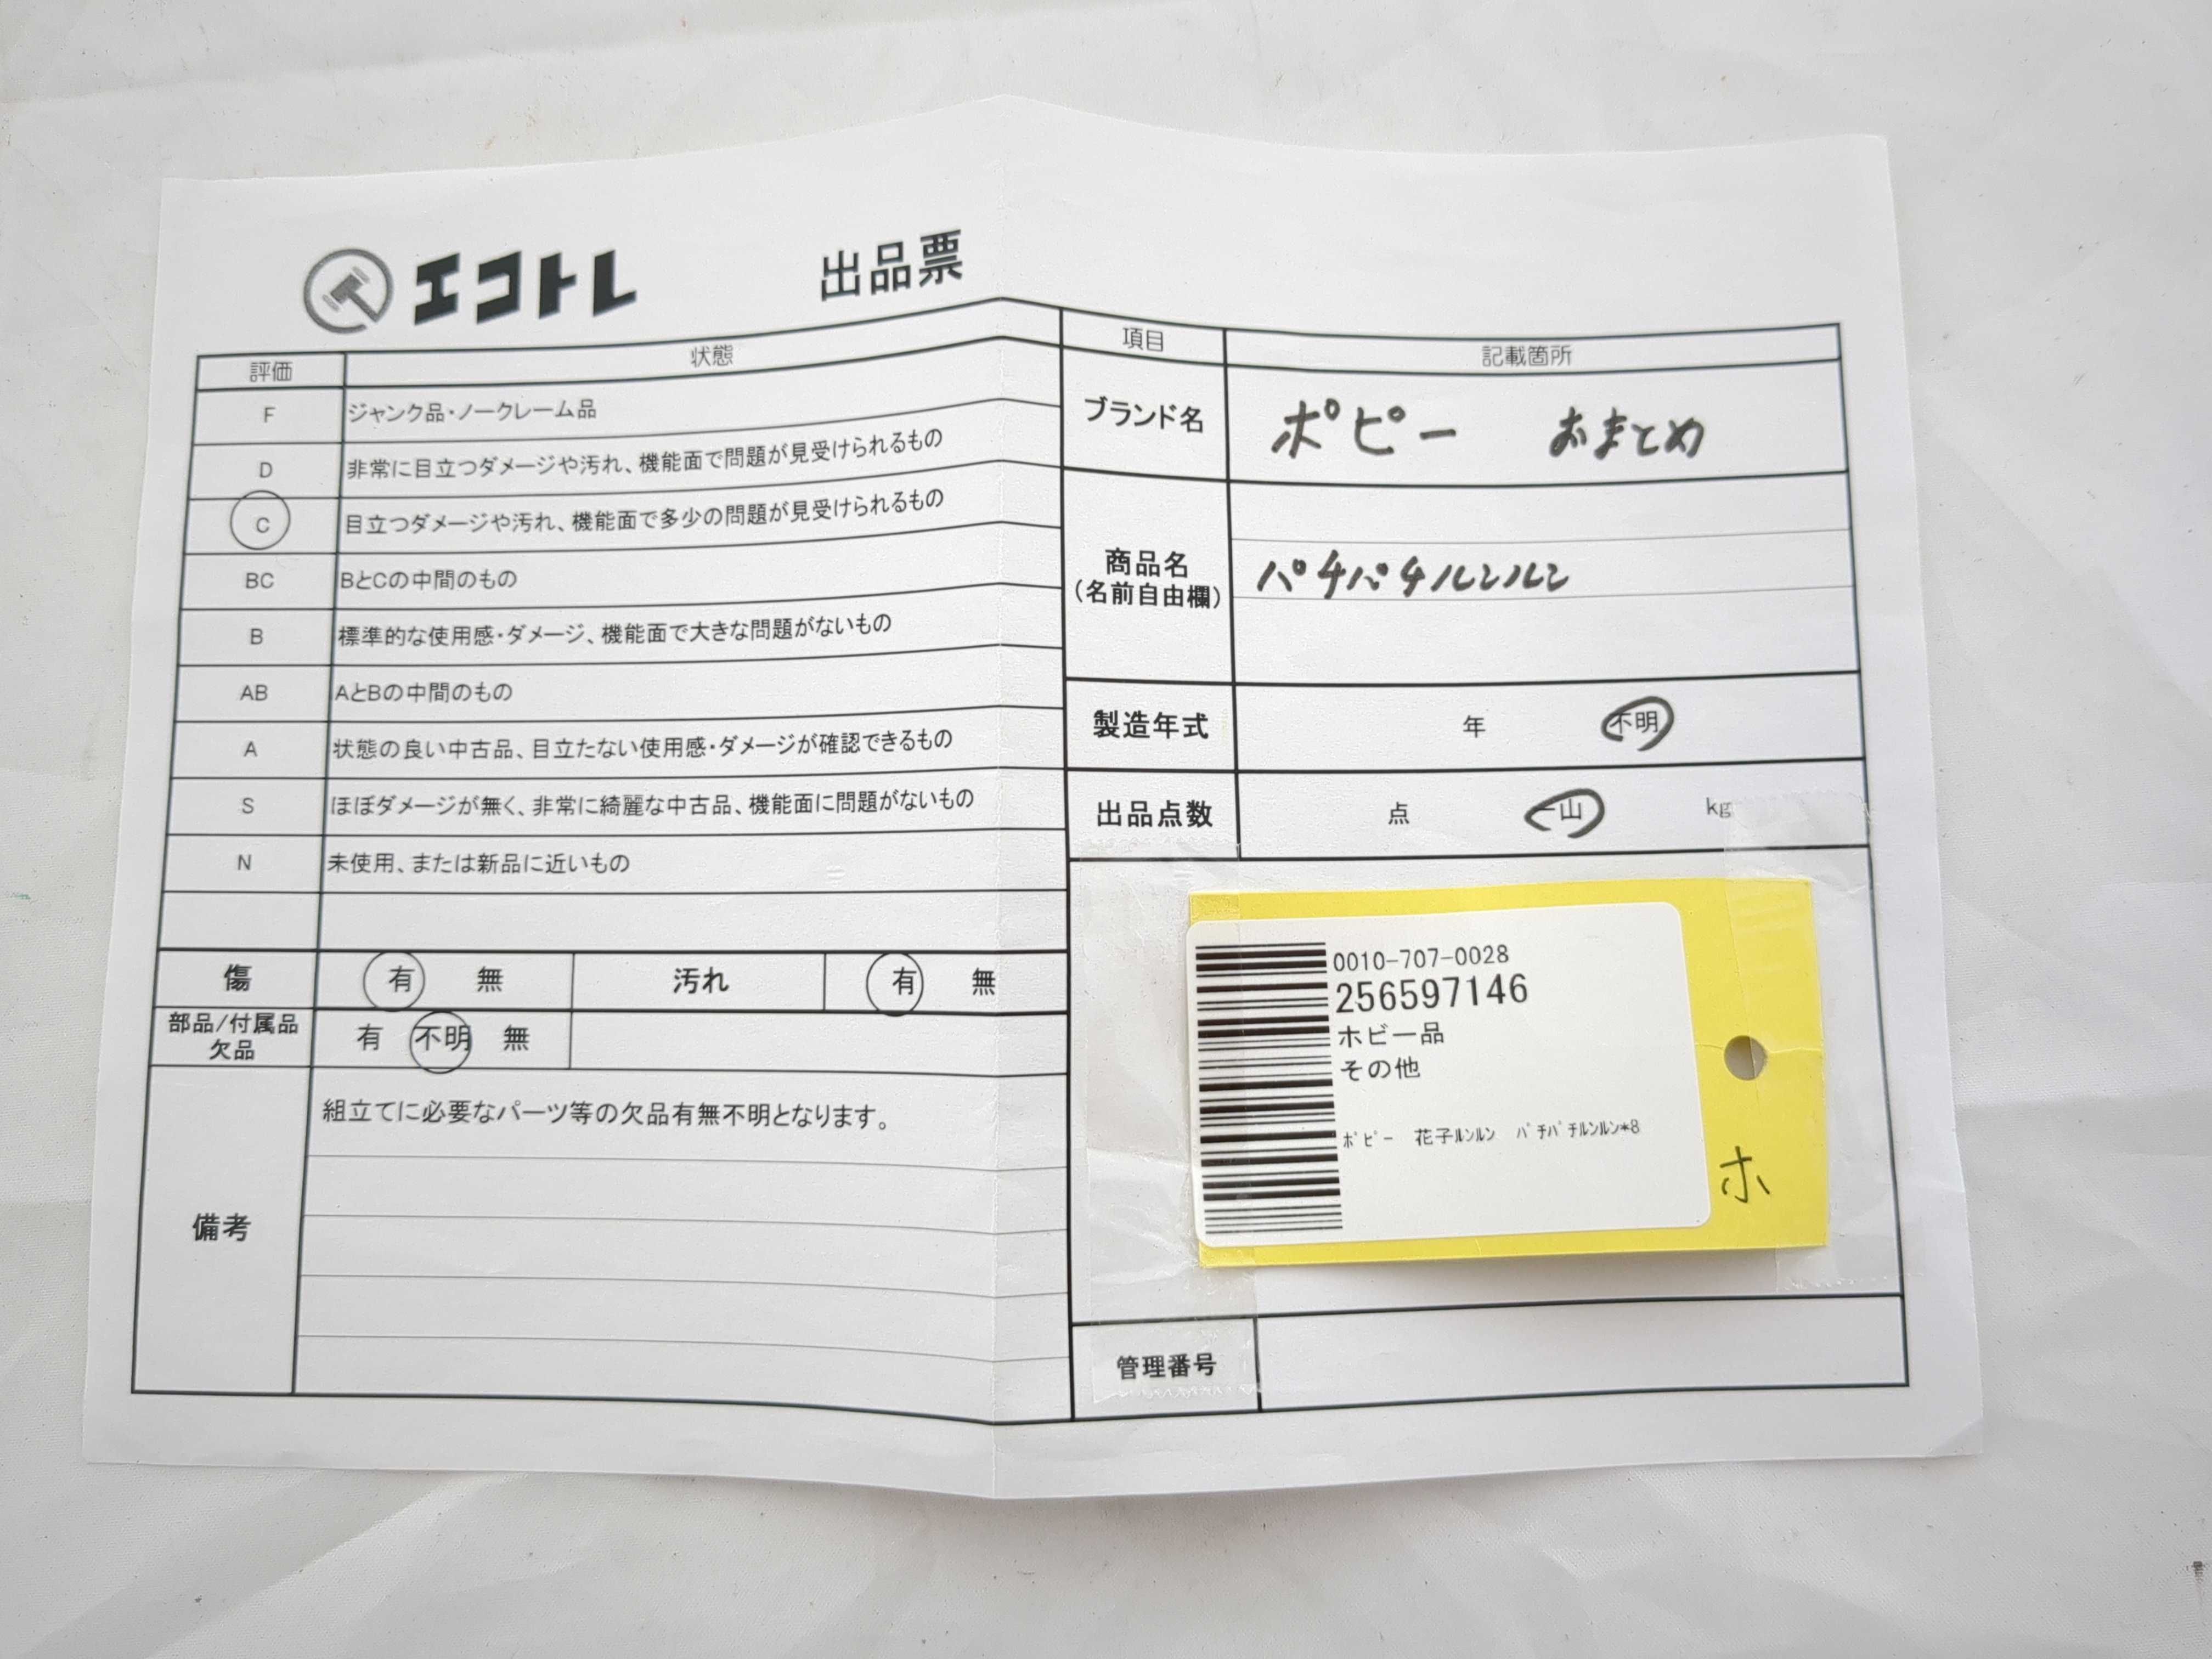 エコトレ 出品票
評価 状態
F ジャンク品・ノークレーム品
D 非常に目立つダメージや汚れ、機能面で問題が見受けられるもの
C 目立つダメージや汚れ、機能面で多少の問題が見受けられるもの
BC BとCの中間のもの
B 標準的な使用感・ダメージ、機能面で大きな問題がないもの
AB AとBの中間のもの
A 状態の良い中古品、目立たない使用感・ダメージが確認できるもの
S ほぼダメージが無く、非常に綺麗な中古品、機能面に問題がないもの
N 未使用、または新品に近いもの
傷 有 無 汚れ 有 無
部品/付属品
欠品
有 不明 無
備考
組立てに必要なパーツ等の欠品有無不明となります。
項目 記載箇所
ブランド名 ポピー おまとめ
商品名
(名前自由欄)
パチパチルンルン
製造年式 年 不明
出品点数 点 一山 kg
0010-707-0028
256597146
ホビー品
その他
ﾎﾟﾋﾟｰ 花子ﾙﾝﾙﾝ ﾊﾟﾁﾊﾟﾁﾙﾝﾙﾝ*8
ホ
管理番号